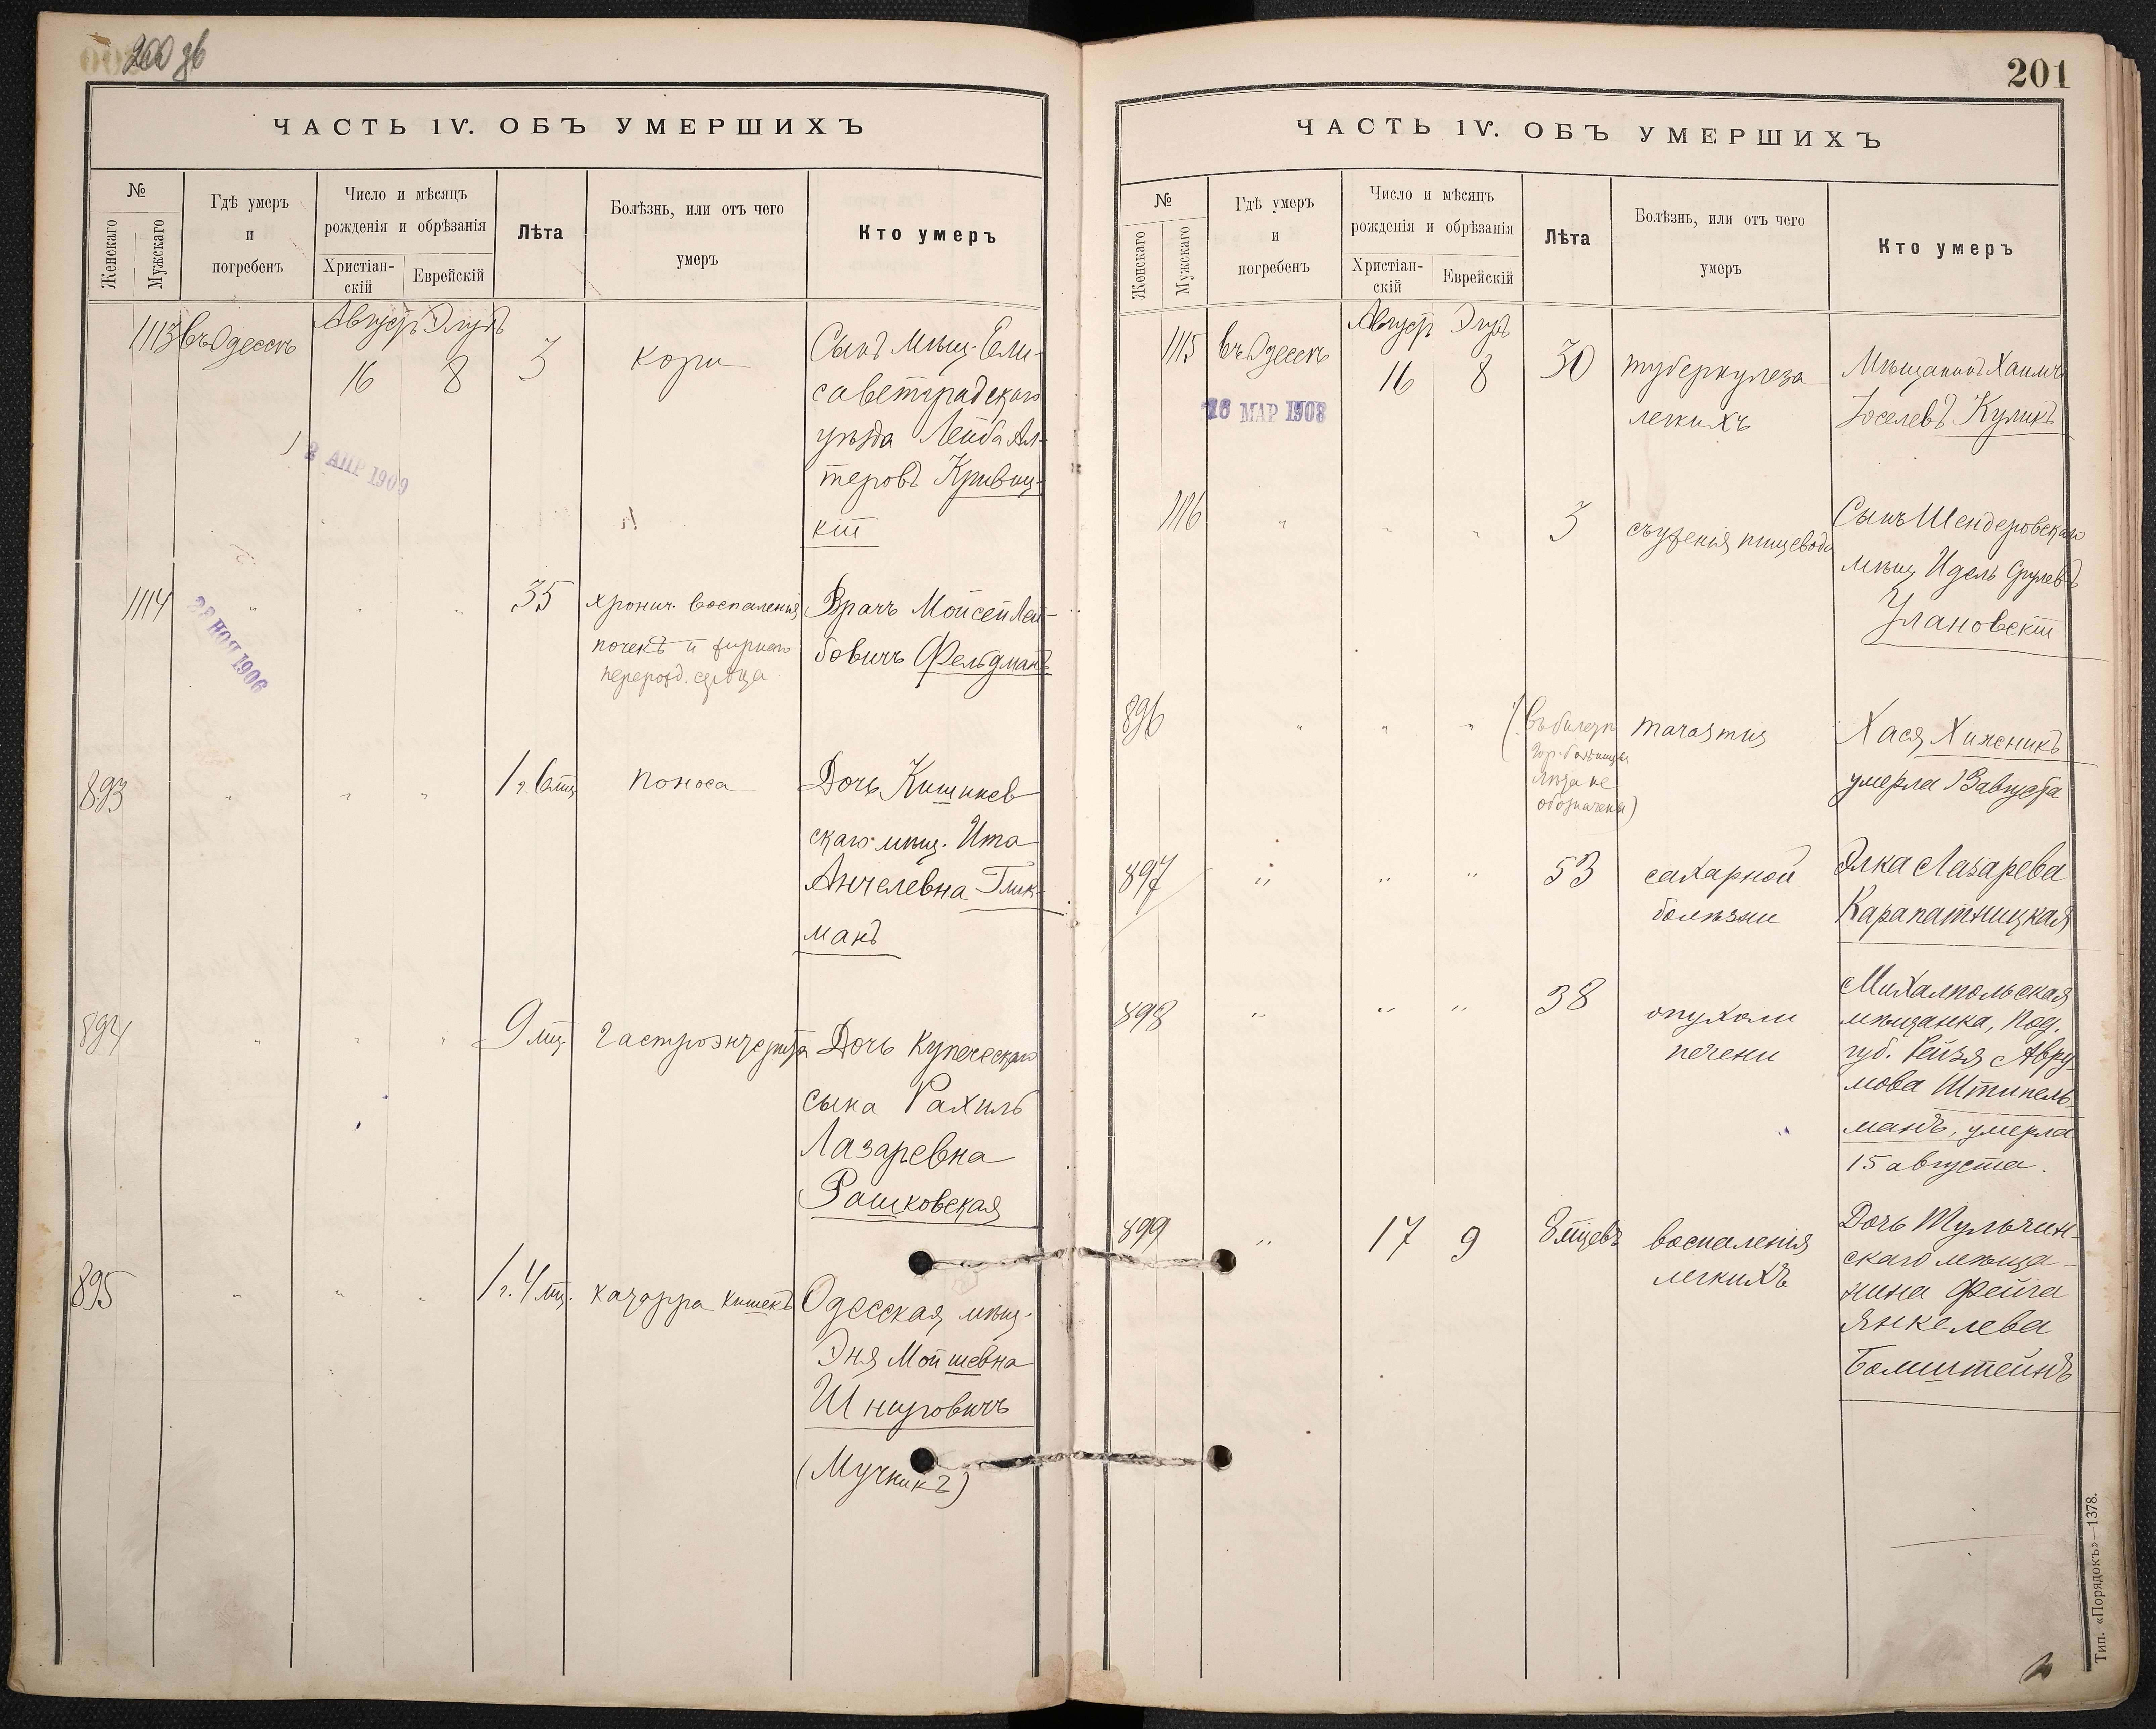 200 об
ЧАСТЬ IV. ОБЪ УМЕРШИХЪ
№
Женскаго
Мужскаго
Гдѣ умеръ
и
погребенъ
Число и мѣсяцъ
рожденія и обрѣзанія
Христіан-
скій
Еврейскій
Лѣта
Болѣзнь, или отъ чего
умеръ
Кто умеръ
1113
въ Одессѣ
Август
Элулъ
16
8
3
кори
Сынъ мѣщ. Ели-
саветградскаго
уѣзда Лейба Ал-
теровъ Кривиц-
кій
2 АПР 1909
1114
28 НОЯ 1906
"
"
"
35
хронич. воспаленія
почекъ и жирнаго
перерожд. сердца
Врачъ Мойсей Лей-
бовичъ Фельдманъ
893
"
"
"
1 г. 6 мц
поноса
Дочь Кишинев
скаго мѣщ. Ита
Анчелевна Глик-
манъ
894
"
"
"
9 мц
гастроэнтерита
Дочь купеческаго
сына Рахиль
Лазаревна
Рашковская
895
"
"
"
1 г. 4 мц.
катарра кишекъ
Одесская мѣщ.
Эня Мойшевна
Шнуровичъ
(Мучникъ)
201
ЧАСТЬ IV. ОБЪ УМЕРШИХЪ
№
Женскаго
Мужскаго
Гдѣ умеръ
и
погребенъ
Число и мѣсяцъ
рожденія и обрѣзанія
Христіан-
скій
Еврейскій
Лѣта
Болѣзнь, или отъ чего
умеръ
Кто умеръ
1115
въ Одессѣ
Август
Элулъ
16
8
30
туберкулеза
легкихъ
Мѣщанинъ Хаимъ
Іоселевъ Куликъ
16 МАР 1908
1116
"
"
"
3
съуженія пищевода
Сынъ Шендеровскаго
мѣщ Идель Срулевъ
Улановскій
896
"
"
"
(въ билетѣ
гор. больницы
лѣта не
обозначены)
marasmus
Хася Хиженикъ
умерла 13 августа
897
"
"
"
53
сахарной
болѣзни
Элка Лазарева
Карапатницкая
898
"
"
"
38
опухоли
печени
Михалпольская
мѣщанка, Под.
губ. Рейзя Авру
мова Штипель-
манъ, умерла
15 августа.
899
"
17
9
8 мцевъ
воспаленія
легкихъ
Дочь Тульчин-
скаго мѣща-
нина Фейга
Янкелева
Бомштейнъ
Тип. «Порядокъ»—1378.